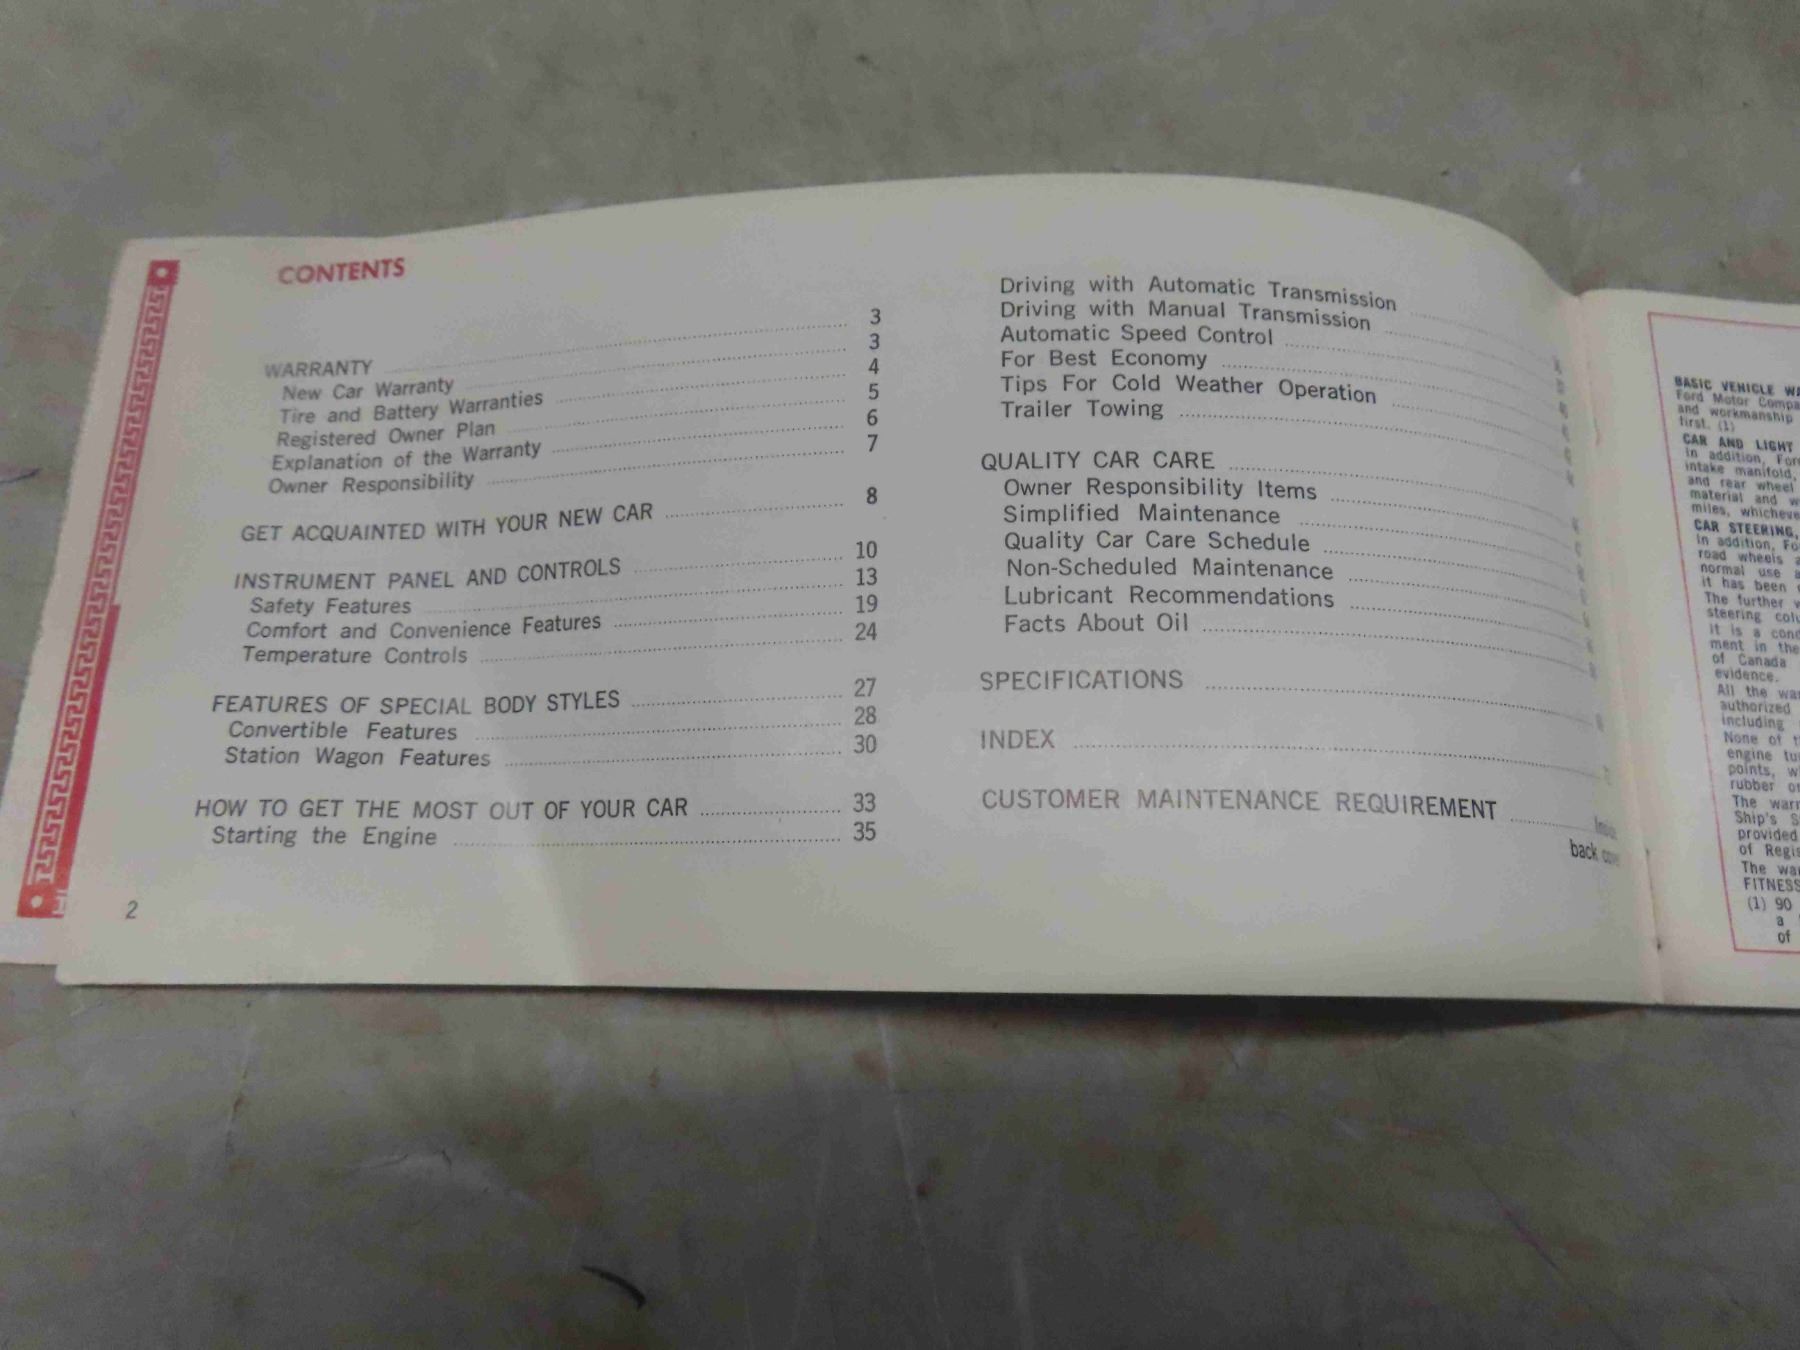 CONTENTS
WARRANTY 3
New Car Warranty 3
Tire and Battery Warranties 4
Registered Owner Plan 5
Explanation of the Warranty 6
Owner Responsibility 7
GET ACQUAINTED WITH YOUR NEW CAR 8
INSTRUMENT PANEL AND CONTROLS 10
Safety Features 13
Comfort and Convenience Features 19
Temperature Controls 24
FEATURES OF SPECIAL BODY STYLES 27
Convertible Features 28
Station Wagon Features 30
HOW TO GET THE MOST OUT OF YOUR CAR 33
Starting the Engine 35
2
Driving with Automatic Transmission
Driving with Manual Transmission
Automatic Speed Control
For Best Economy
Tips For Cold Weather Operation
Trailer Towing
QUALITY CAR CARE
Owner Responsibility Items
Simplified Maintenance
Quality Car Care Schedule
Non-Scheduled Maintenance
Lubricant Recommendations
Facts About Oil
SPECIFICATIONS
INDEX
CUSTOMER MAINTENANCE REQUIREMENT
back
BASIC VEHICLE
Ford Motor
and workmanship
first. (1)
CAR AND LIGHT
In addition,
intake manifold,
and rear wheel
material and
miles,
CAR STEERING,
In addition,
road wheels
normal use
it has been
The further
steering
it is a
ment in the
of Canada
evidence.
All the
authorized
including
None of
engine
points,
rubber
The
Ship's
provided
of
The
FITNESS
(1) 90
a
of